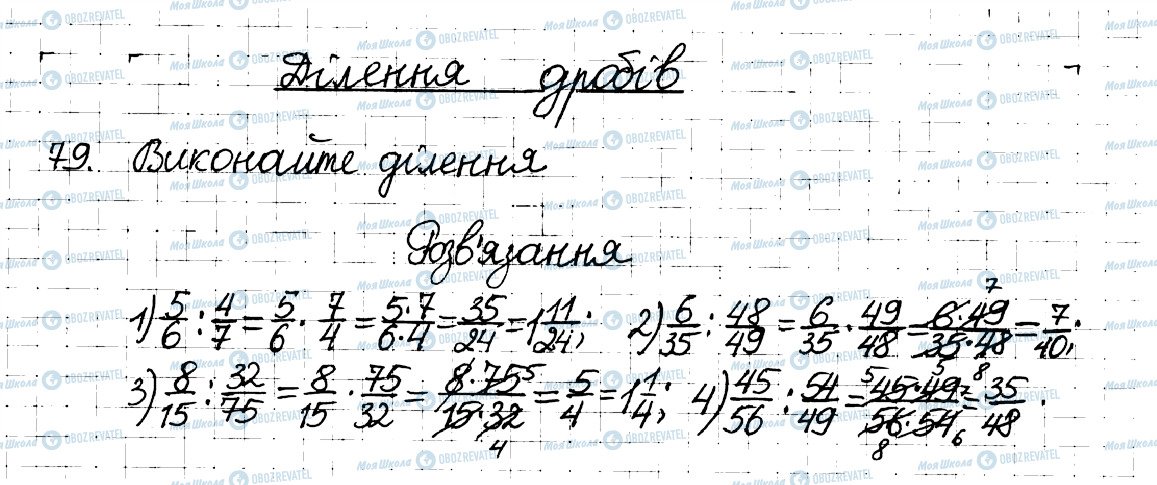 Ділення дробів
79. Виконайте ділення
Розв'язання
1) 5/6 : 4/7 = 5/6 · 7/4 = 5·7/6·4 = 35/24 = 1 11/24; 2) 6/35 : 48/49 = 6/35 · 49/48 = 6·49/35·48 = 7/40;
3) 8/15 : 32/75 = 8/15 · 75/32 = 8·75/15·32 = 5/4 = 1 1/4; 4) 45/56 : 54/49 = 45·49/56·54 = 35/48.